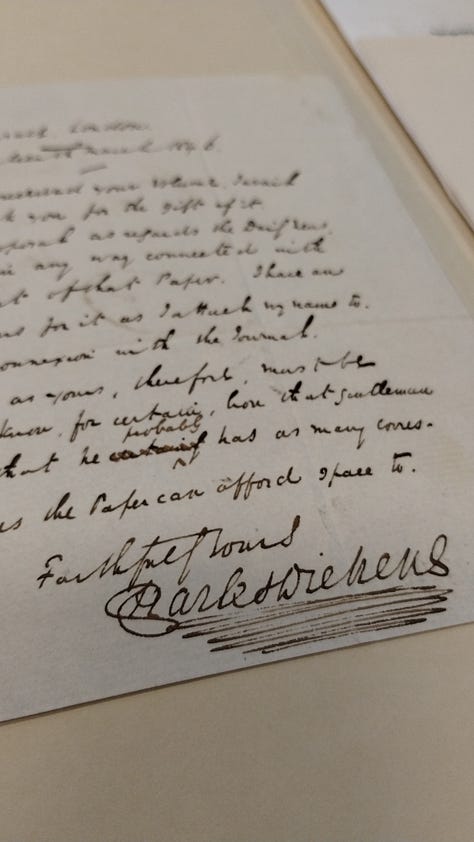 London.
March 1846.
received your volume, I wish
you for the gift of it
proposal as regards the Daily News,
in any way connected with
of that Paper. I have an
for it as I attach my name to.
connexion with the Journal.
as yours, therefore, must be
know, for certain, how that gentleman
probably
that he certainly has as many corres-
the Paper can afford space to.
Faithfully Yours
Charles Dickens